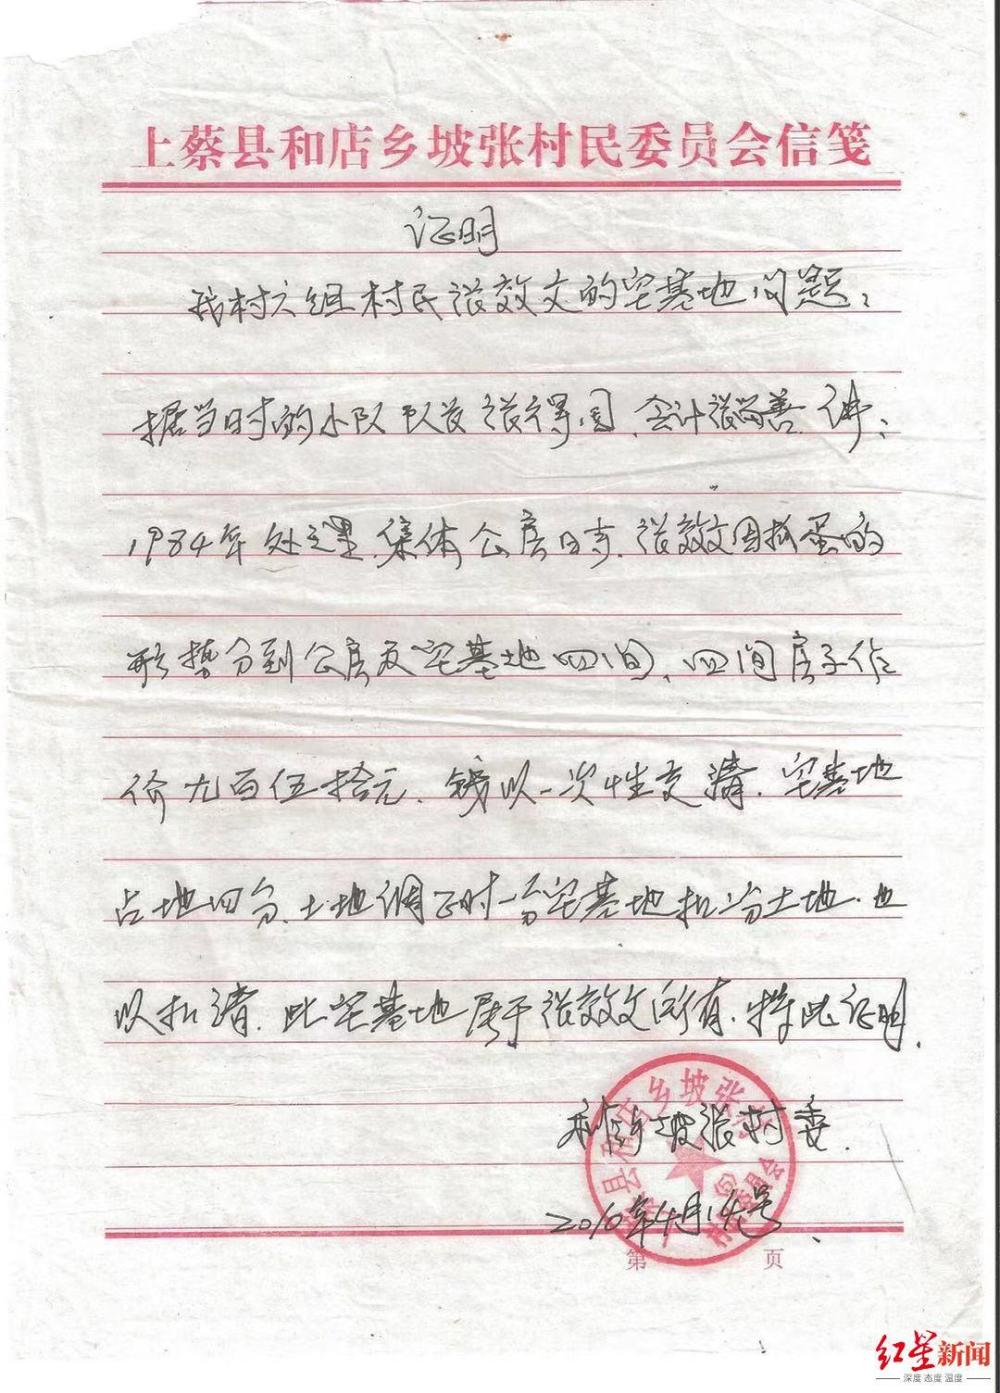 上蔡县和店乡坡张村民委员会信笺
证明
我村六组村民张效文的宅基地问题:
据当时的小队队长张得园、会计张尚善讲:
1984年处理集体公房时、张效文因抓蛋的
形势分到公房及宅基地四间、四间房子作
价九百伍拾元、钱以一次性交清、宅基地
占地四分、土地调正时一分宅基地扣二分土地、也
以扣清、此宅基地属于张效文所有、特此证明、
和店乡坡张村委、
2010年4月14号、
第 页
红星新闻
深度 态度 温度